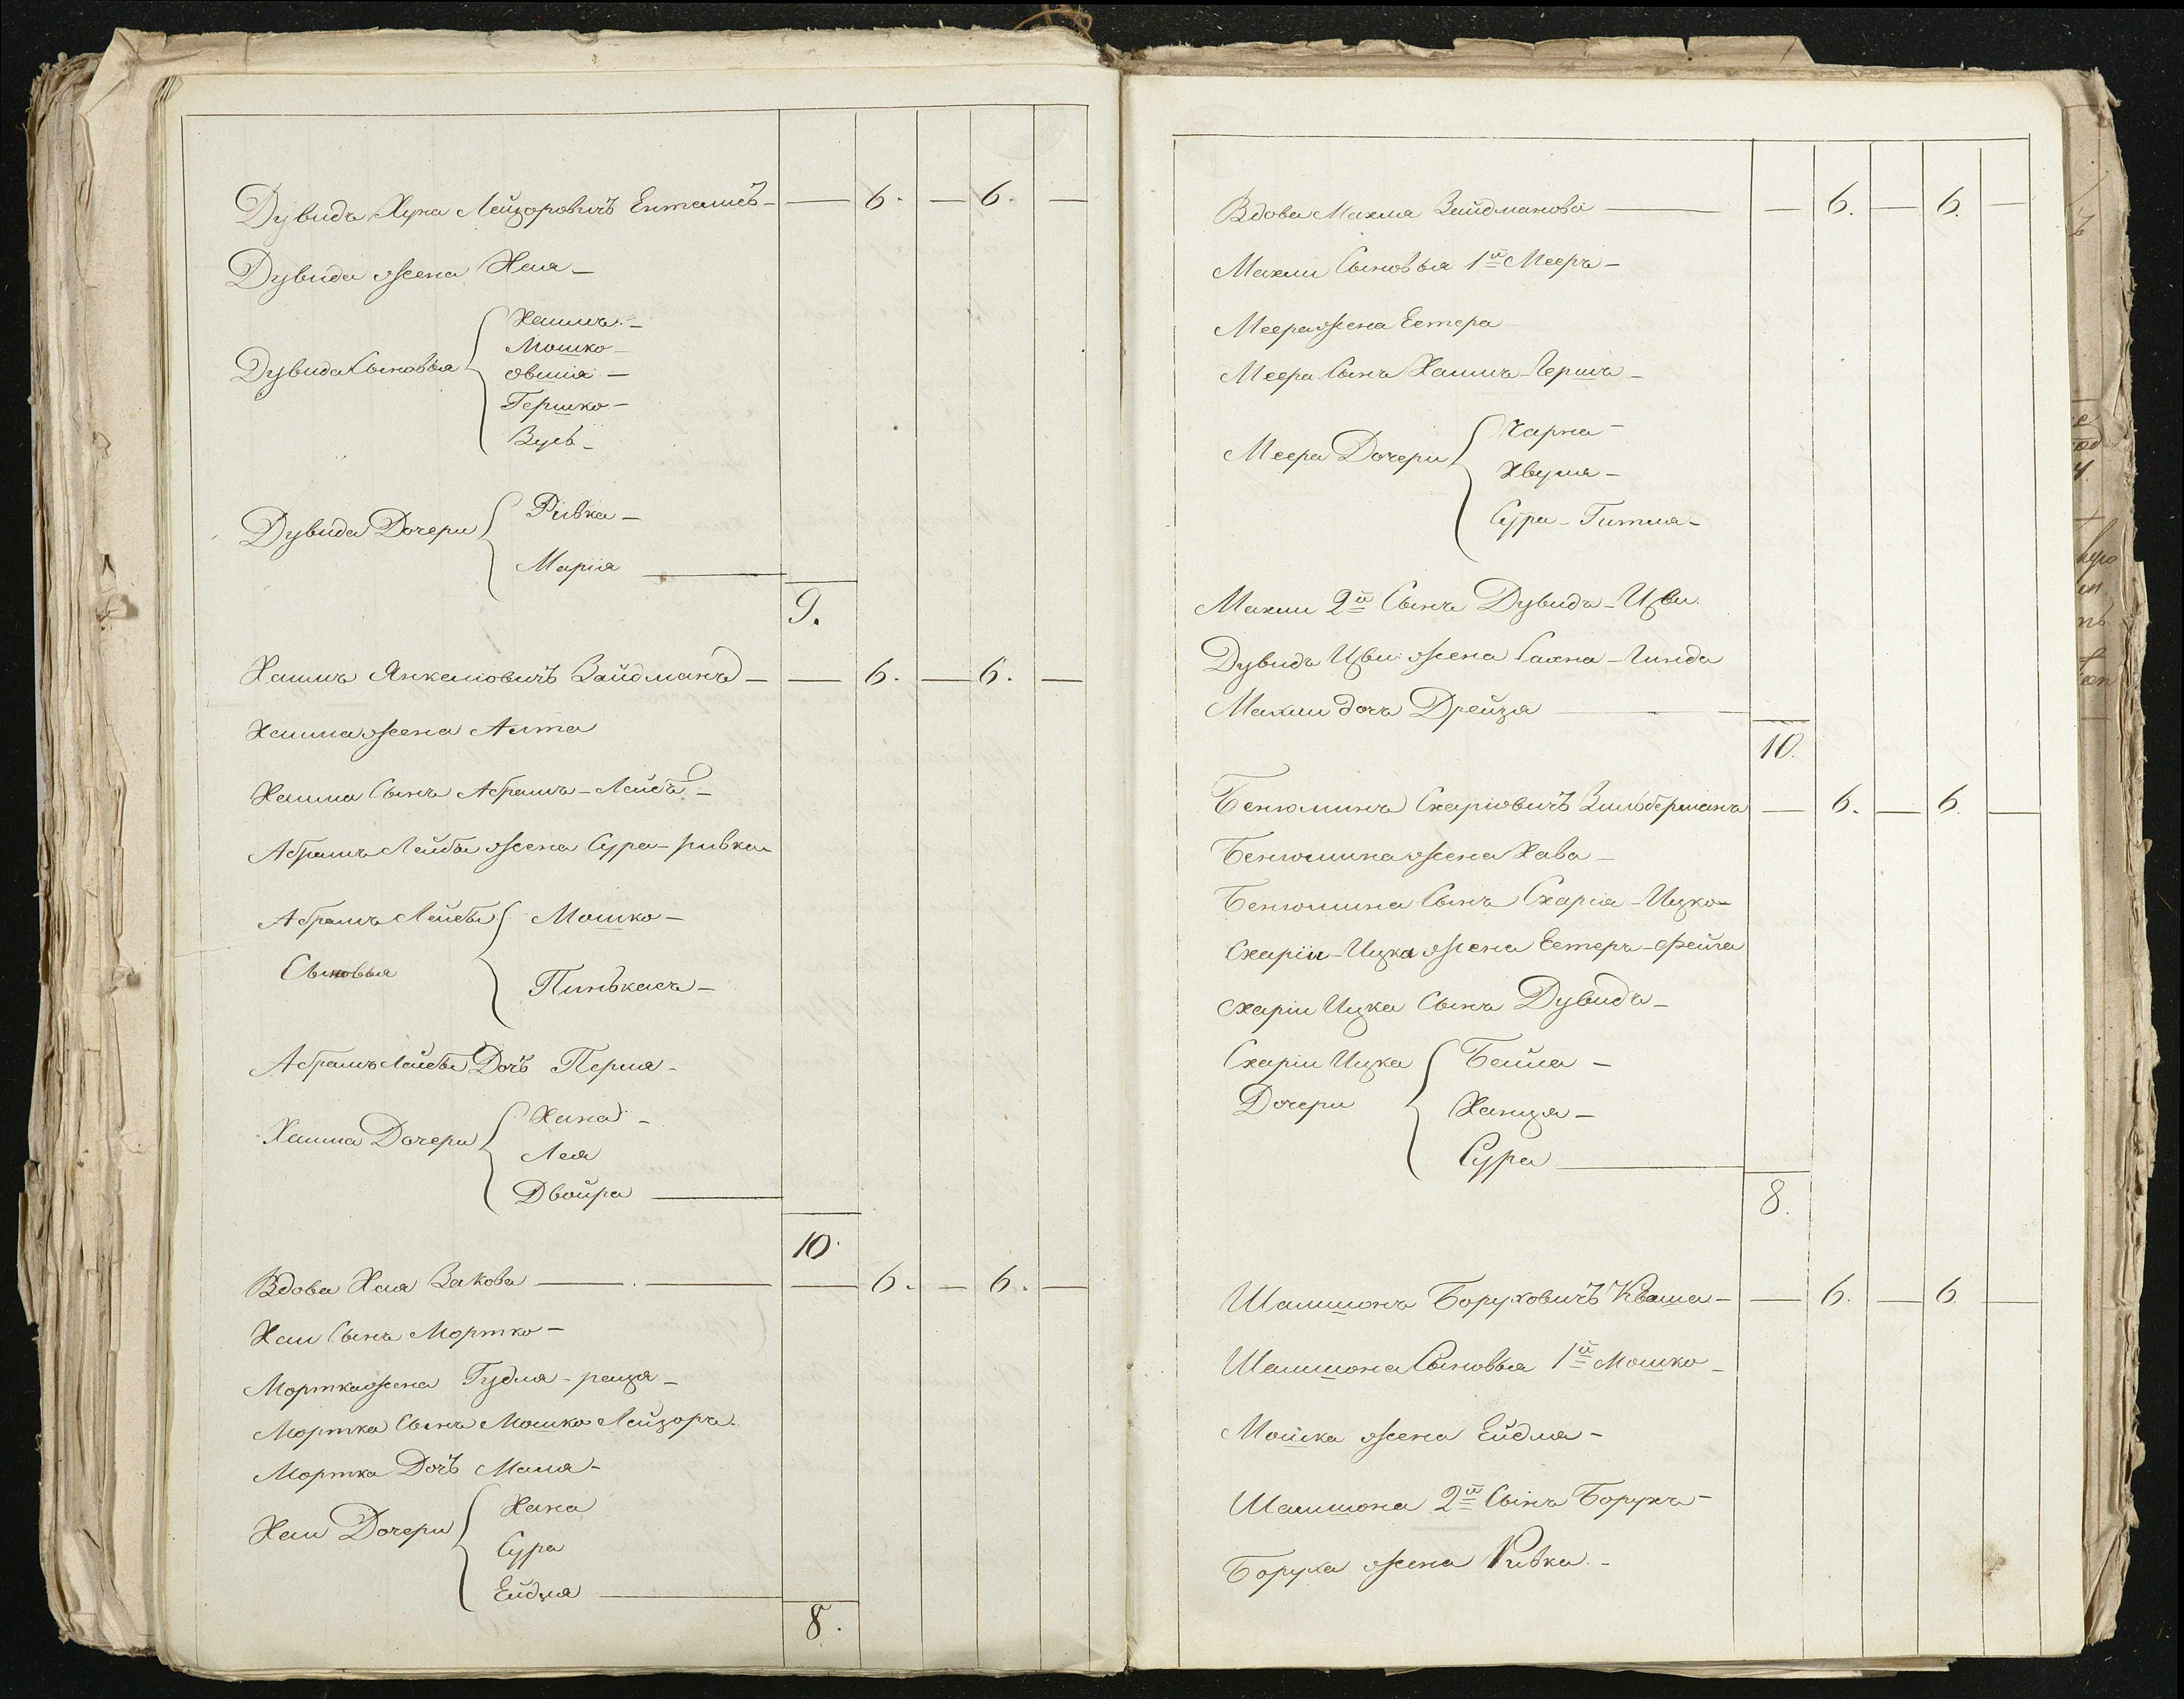 Дувидъ Хуна Лейзоровичъ Ентелисъ — — 6. — 6. —
Дувида жена Хая —
Дувида Сыновья
Хаимъ —
Мошко —
Овшія —
Гершко —
Вуль —
Дувида Дочери
Ривка —
Марія —
9.
Хаимъ Янкеловичъ Вайдманъ — — 6. — 6. —
Хаима жена Алта
Хаима Сынъ Абрамъ-Лейба —
Абрамъ Лейбы жена Сура-ривка
Абрамъ Лейбы Сыновья
Мошко —
Пинькасъ —
Абрамъ Лейбы Дочь Перля —
Хаима Дочери
Хана —
Лея
Двойра —
10.
Вдова Хая Вакова — — 6. — 6. —
Хаи Сынъ Мортко —
Мортка жена Гудля-рейзя —
Мортка Сынъ Мошко Лейзоръ —
Мортка Дочь Маля —
Хаи Дочери
Хана
Сура
Ейдля —
8.
Вдова Махля Вайдманова — — 6. — 6. —
Махли Сыновья 1й Мееръ —
Меера жена Естера
Меера Сынъ Хаимъ-Гершъ —
Меера Дочери
Чарна —
Хвуля —
Сура-Гитля —
Махли 2й Сынъ Дувидъ-Цви
Дувидъ Цви жена Рахна-Гинда
Махли дочь Дрейзя —
10.
Бенюминъ Схаріовичъ Зильберманъ — 6. — 6. —
Бенюмина жена Хава —
Бенюмина Сынъ Схарія-Ицко —
Схаріи-Ицка жена Естеръ-Фейга
Схаріи Ицка Сынъ Дувидъ —
Схаріи Ицка Дочери
Бейла —
Ханця —
Сура —
8.
Шамшонъ Боруховичъ Кваша — — 6. — 6 —
Шамшона Сыновья 1й Мошко —
Мошка жена Ейдля —
Шамшона 2й Сынъ Борухъ —
Боруха жена Ривка —